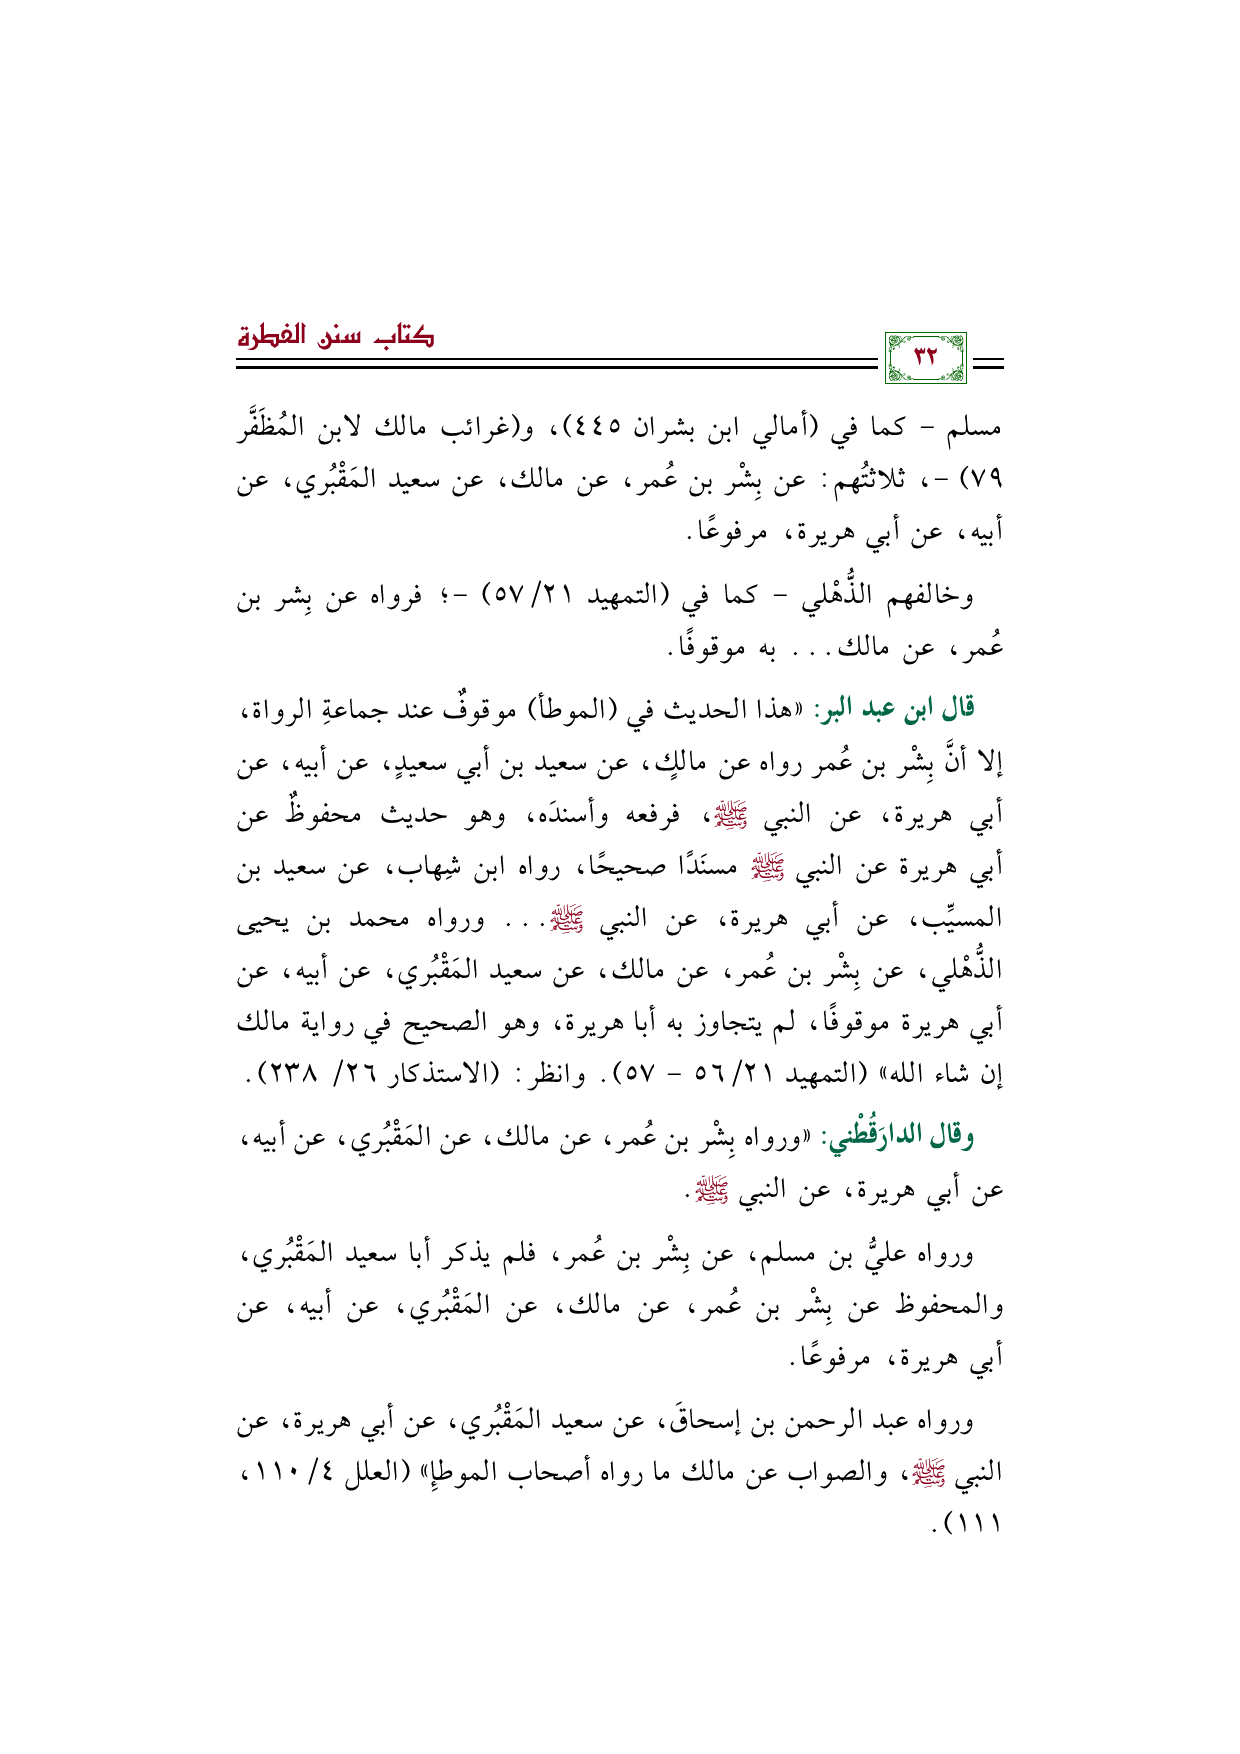 كتاب سنن الفطرة
٣٢
مسلم - كما في (أمالي ابن بشران ٤٤٥)، و(غرائب مالك لابن المُظَفَّر
٧٩) -، ثلاثتُهم: عن بِشْر بن عُمر، عن مالك، عن سعيد المَقْبُري، عن
أبيه، عن أبي هريرة، مرفوعًا.
وخالفهم الذُّهْلي - كما في (التمهيد ٢١/ ٥٧) -؛ فرواه عن بِشر بن
عُمر، عن مالك... به موقوفًا.
قال ابن عبد البر: «هذا الحديث في (الموطأ) موقوفٌ عند جماعةِ الرواة،
إلا أنَّ بِشْر بن عُمر رواه عن مالكٍ، عن سعيد بن أبي سعيدٍ، عن أبيه، عن
أبي هريرة، عن النبي ﷺ، فرفعه وأسندَه، وهو حديث محفوظٌ عن
أبي هريرة عن النبي ﷺ مسنَدًا صحيحًا، رواه ابن شِهاب، عن سعيد بن
المسيِّب، عن أبي هريرة، عن النبي ﷺ... ورواه محمد بن يحيى
الذُّهْلي، عن بِشْر بن عُمر، عن مالك، عن سعيد المَقْبُري، عن أبيه، عن
أبي هريرة موقوفًا، لم يتجاوز به أبا هريرة، وهو الصحيح في رواية مالك
إن شاء الله» (التمهيد ٢١/ ٥٦ - ٥٧). وانظر: (الاستذكار ٢٦/ ٢٣٨).
وقال الدارَقُطْني: «ورواه بِشْر بن عُمر، عن مالك، عن المَقْبُري، عن أبيه،
عن أبي هريرة، عن النبي ﷺ.
ورواه عليُّ بن مسلم، عن بِشْر بن عُمر، فلم يذكر أبا سعيد المَقْبُري،
والمحفوظ عن بِشْر بن عُمر، عن مالك، عن المَقْبُري، عن أبيه، عن
أبي هريرة، مرفوعًا.
ورواه عبد الرحمن بن إسحاقَ، عن سعيد المَقْبُري، عن أبي هريرة، عن
النبي ﷺ، والصواب عن مالك ما رواه أصحاب الموطإِ» (العلل ٤/ ١١٠،
١١١).